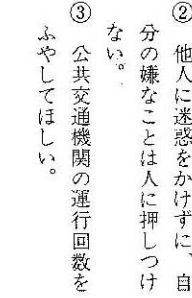 ② 他人に迷惑をかけずに、自
分の嫌なことは人に押しつけ
ない。
③ 公共交通機関の運行回数を
ふやしてほしい。